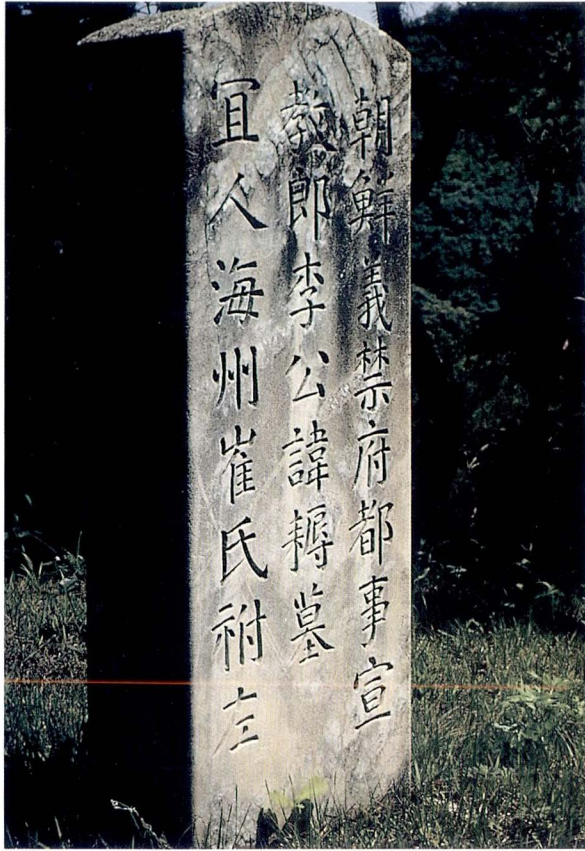 朝鮮義禁府都事宣
教郎李公諱耨墓
宜人海州崔氏祔左